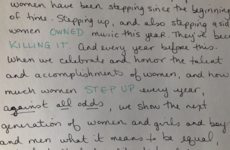 women have been stepping since the beginning
of time. Stepping up, and also stepping aside
women OWNED music this year. They've been
KILLING IT. And every year before this.
When we celebrate and honor the talent
and accomplishments of women, and how
much women STEP UP every year,
against all odds, we show the next
generation of women and girls and boys
and men what it means to be equal,